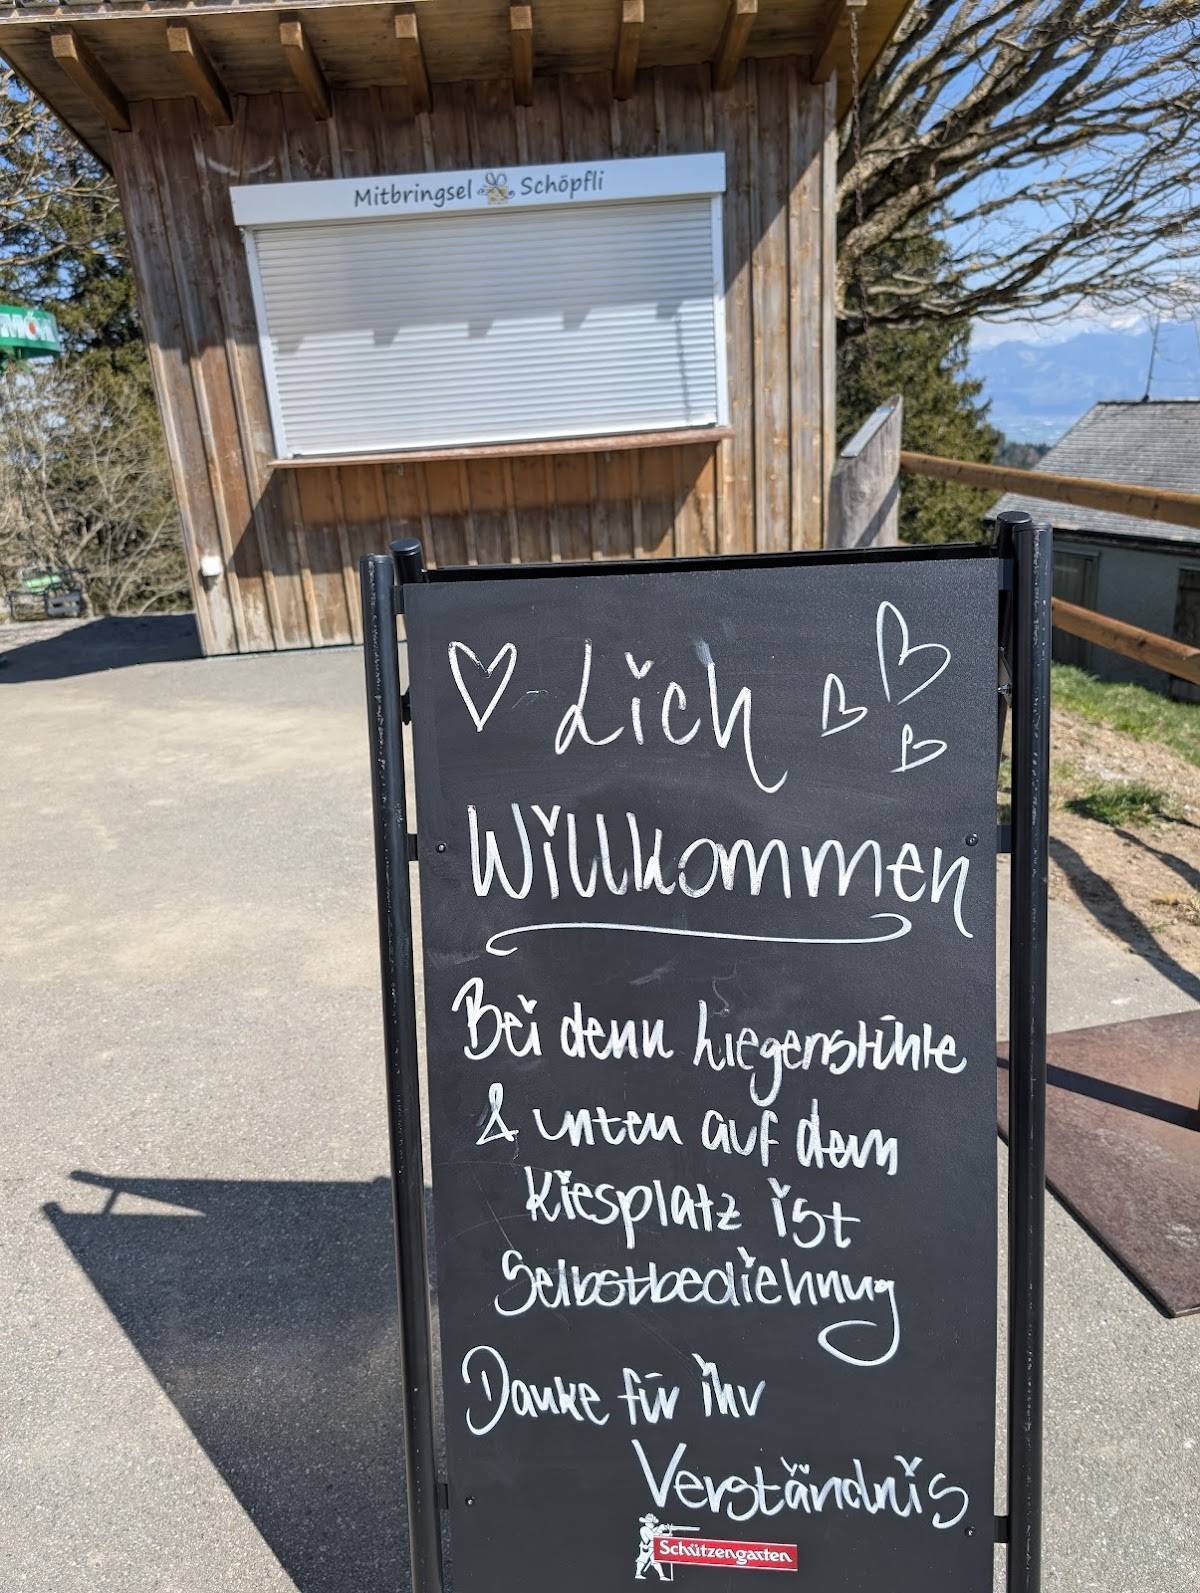 Mitbringsel Schöpfli
Möh
♡-lich
Willkommen
Bei denn Liegenstühle
& unten auf dem
Kiesplatz ist
Selbstbediehnug
Danke für ihr
Verständnis
Schützengarten